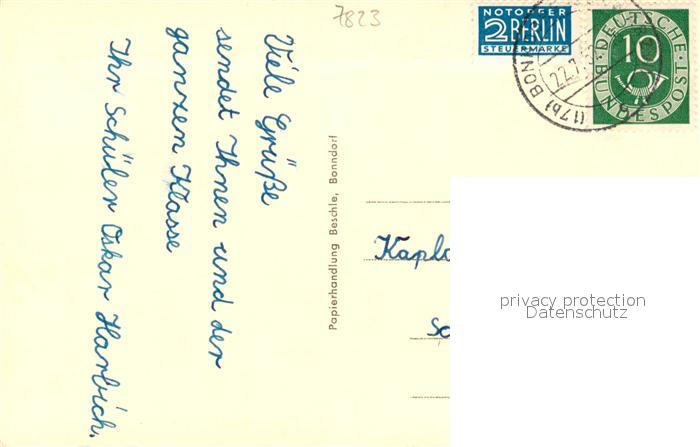 7823
NOTOPFER
2 BERLIN
STEUERMARKE
DEUTSCHE BUNDESPOST
10
(17b) BONN
22.7.
Viele Grüße
sendet Ihnen und der
ganzen Klasse
Ihr Schüler Oskar Harbich.
Papierhandlung Beschle, Bonndorf
Kaplo
Sc
privacy protection
Datenschutz